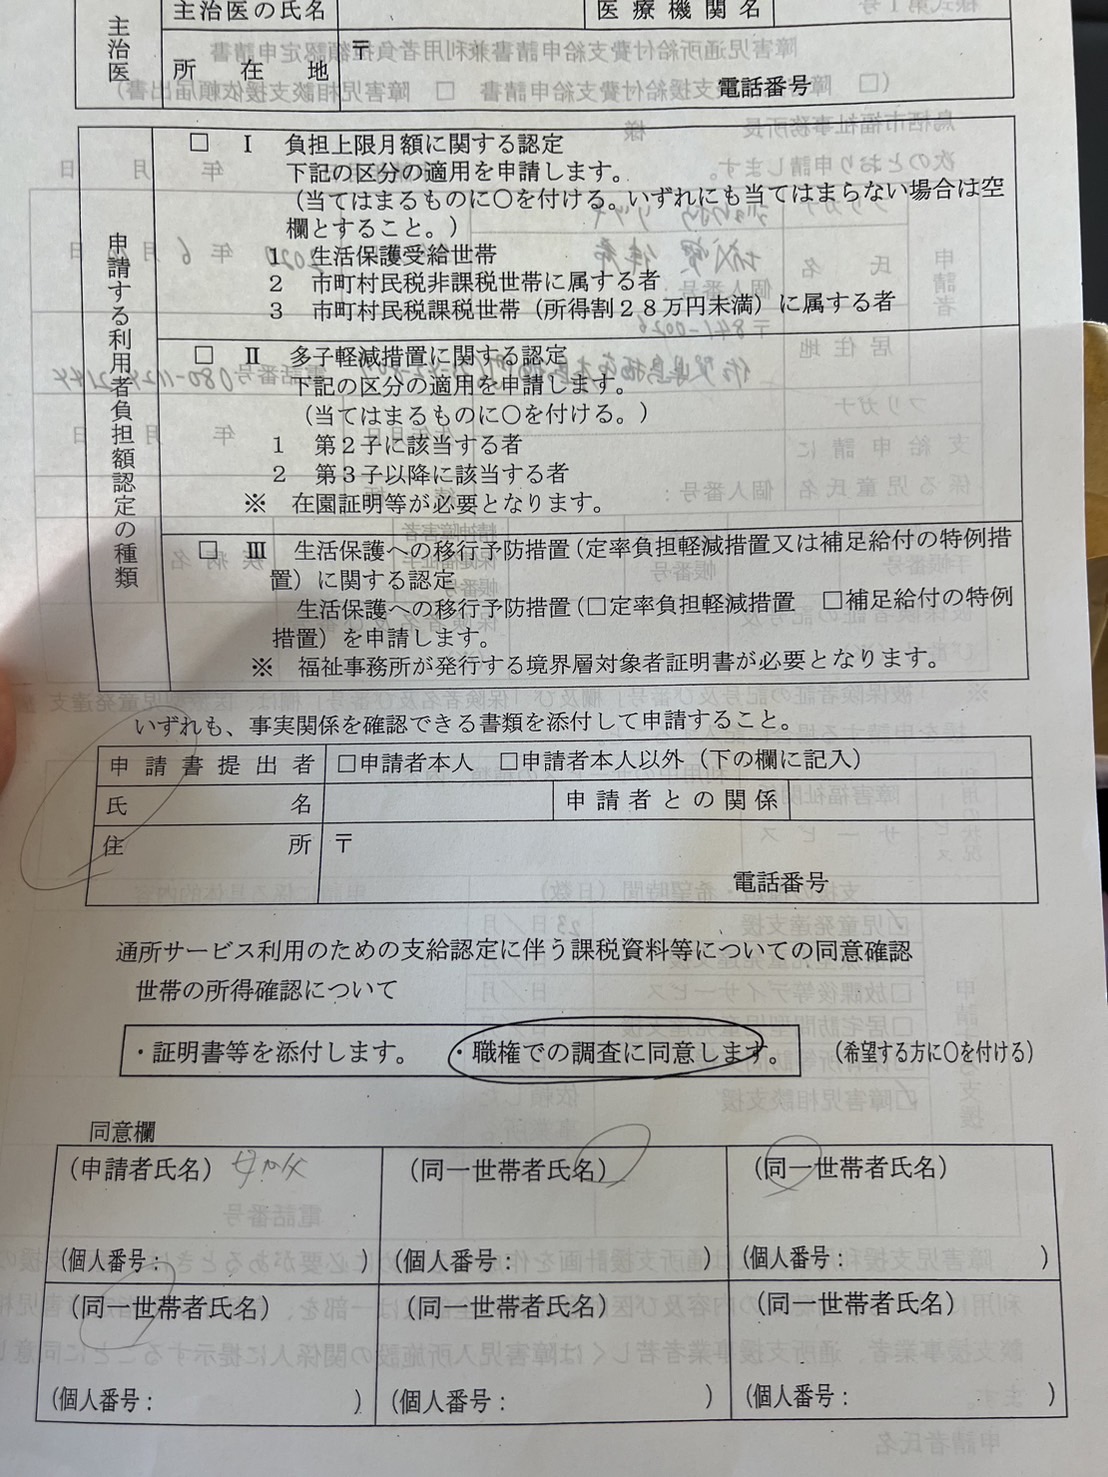 主治医
主治医の氏名
医療機関名
所在地
〒
電話番号
申請する利用者負担額認定の種類
□ Ⅰ 負担上限月額に関する認定
下記の区分の適用を申請します。
(当てはまるものに○を付ける。いずれにも当てはまらない場合は空
欄とすること。)
1 生活保護受給世帯
2 市町村民税非課税世帯に属する者
3 市町村民税課税世帯（所得割２８万円未満）に属する者
□ Ⅱ 多子軽減措置に関する認定
下記の区分の適用を申請します。
(当てはまるものに○を付ける。)
1 第２子に該当する者
2 第３子以降に該当する者
※ 在園証明等が必要となります。
□ Ⅲ 生活保護への移行予防措置(定率負担軽減措置又は補足給付の特例措
置）に関する認定
生活保護への移行予防措置(□定率負担軽減措置 □補足給付の特例
措置）を申請します。
※ 福祉事務所が発行する境界層対象者証明書が必要となります。
いずれも、事実関係を確認できる書類を添付して申請すること。
申請書提出者 □申請者本人 □申請者本人以外（下の欄に記入）
氏名
申請者との関係
住所 〒
電話番号
通所サービス利用のための支給認定に伴う課税資料等についての同意確認
世帯の所得確認について
・証明書等を添付します。 ・職権での調査に同意します。 (希望する方に○を付ける)
同意欄
(申請者氏名) 母か父 (同一世帯者氏名) (同一世帯者氏名)
(個人番号： ) (個人番号： ) (個人番号： )
(同一世帯者氏名) (同一世帯者氏名) (同一世帯者氏名)
(個人番号： ) (個人番号： ) (個人番号： )